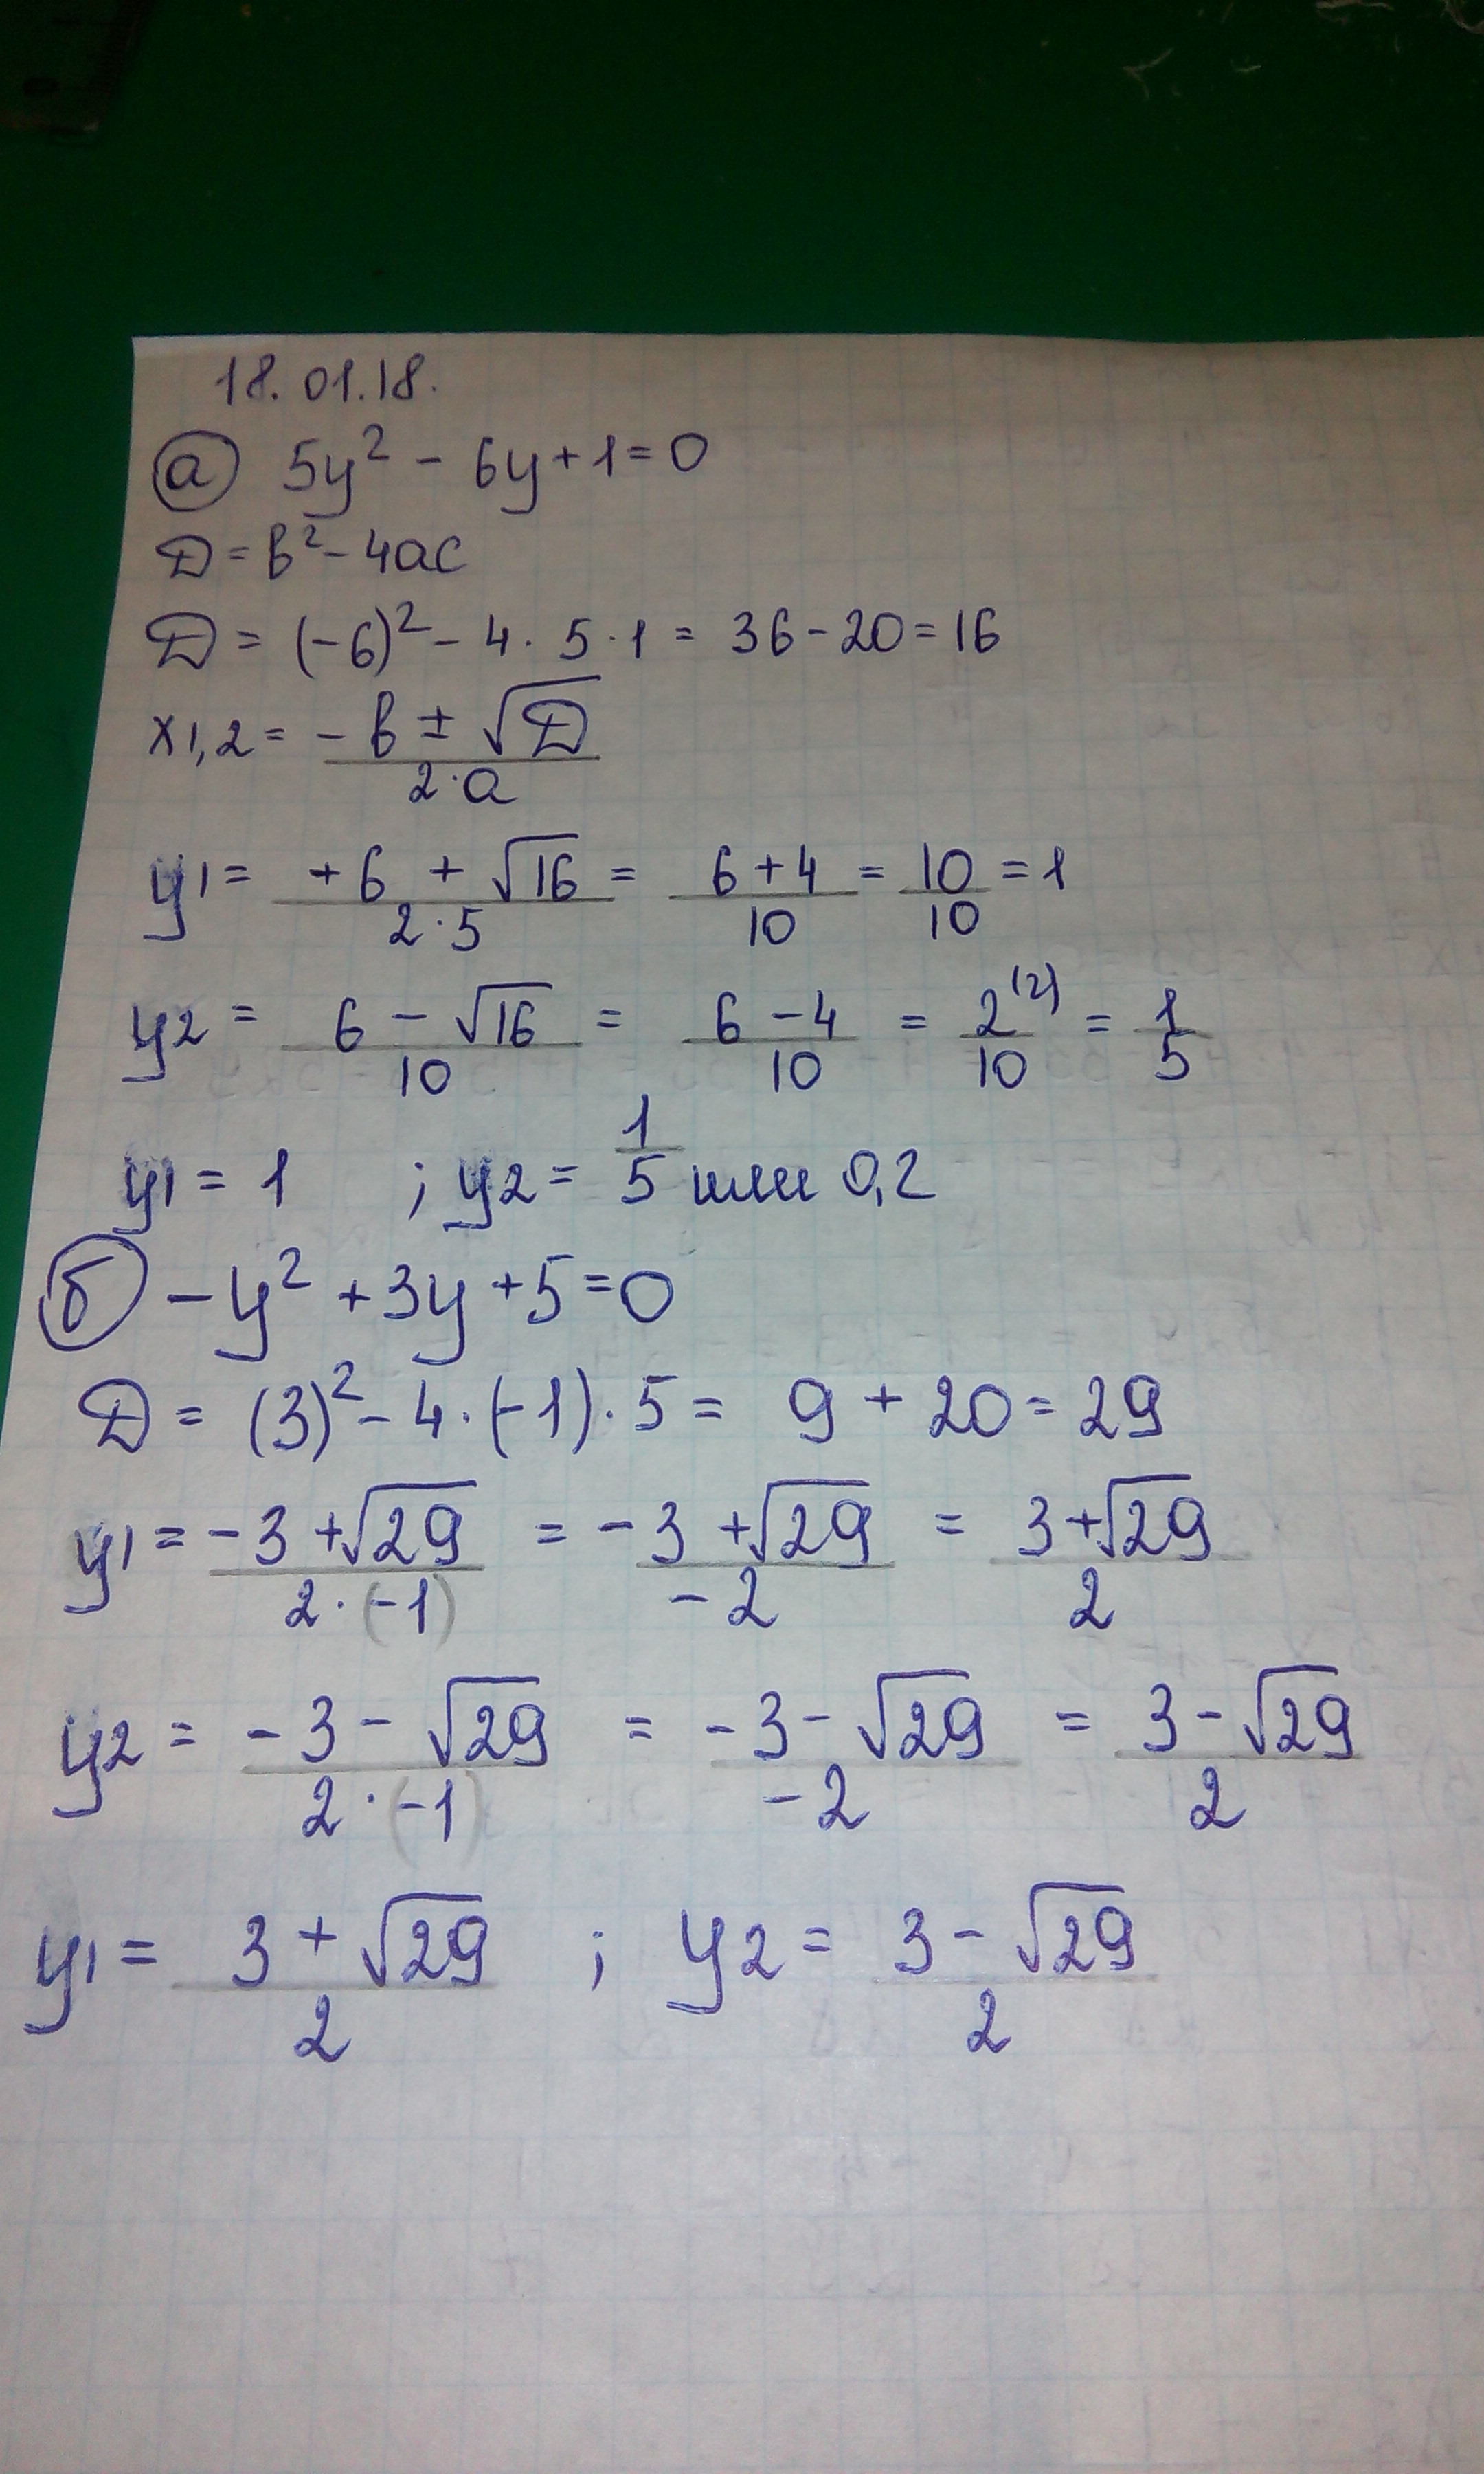 18.01.18.
а) 5y² - 6y + 1 = 0
D = b² - 4ac
D = (-6)² - 4 · 5 · 1 = 36 - 20 = 16
x1,2 = (-b ± √D)/(2·a)
y1 = (+6 + √16)/(2·5) = (6 + 4)/10 = 10/10 = 1
y2 = (6 - √16)/10 = (6 - 4)/10 = 2⁽²⁾/10 = 1/5
y1 = 1 ; y2 = 1/5 или 0,2
б) -y² + 3y + 5 = 0
D = (3)² - 4 · (-1) · 5 = 9 + 20 = 29
y1 = (-3 + √29)/(2 · (-1)) = (-3 + √29)/(-2) = (3 + √29)/2
y2 = (-3 - √29)/(2 · (-1)) = (-3 - √29)/(-2) = (3 - √29)/2
y1 = (3 + √29)/2 ; y2 = (3 - √29)/2